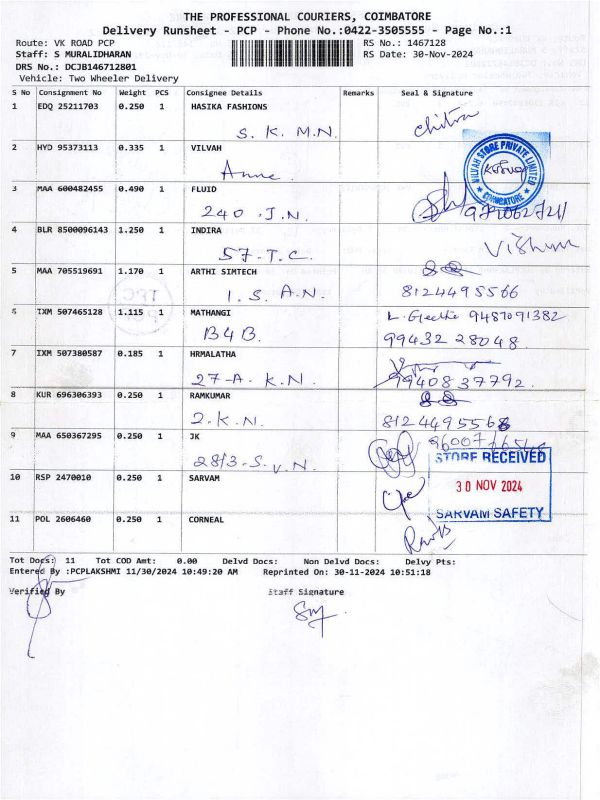 THE PROFESSIONAL COURIERS, COIMBATORE
Delivery Runsheet - PCP - Phone No.:0422-3505555 - Page No.:1
Route: VK ROAD PCP RS No.: 1467128
Staff: S MURALIDHARAN RS Date: 30-Nov-2024
DRS No.: DCJB146712801
Vehicle: Two Wheeler Delivery
S No Consignment No Weight PCS Consignee Details Remarks Seal & Signature
1 EDQ 25211703 0.250 1 HASIKA FASHIONS
S. K. M.N. Chitra
2 HYD 95373113 0.335 1 VILVAH
Anne. VILVAH STORE PRIVATE LIMITED COIMBATORE
3 MAA 600482455 0.490 1 FLUID
240 .J.N.
4 BLR 8500096143 1.250 1 INDIRA
57-T.C. Vishnu
5 MAA 705519691 1.170 1 ARTHI SIMTECH
1. S. A.N. 8124495566
6 IXM 507465128 1.115 1 MATHANGI L. Geetha 9487091382
B4B. 99432 28048
7 IXM 507380587 0.185 1 HRMALATHA
27-A. K.N. 9940837792.
8 KUR 696306393 0.250 1 RAMKUMAR
2.K.N. 8124495568
9 MAA 650367295 0.250 1 JK
28/3-S.V.N. STORE RECEIVED
10 RSP 2470010 0.250 1 SARVAM 30 NOV 2024
SARVAM SAFETY
11 POL 2606460 0.250 1 CORNEAL
Tot Docs: 11 Tot COD Amt: 0.00 Delvd Docs: Non Delvd Docs: Delvy Pts:
Entered By :PCPLAKSHMI 11/30/2024 10:49:20 AM Reprinted On: 30-11-2024 10:51:18
Verified By Staff Signature